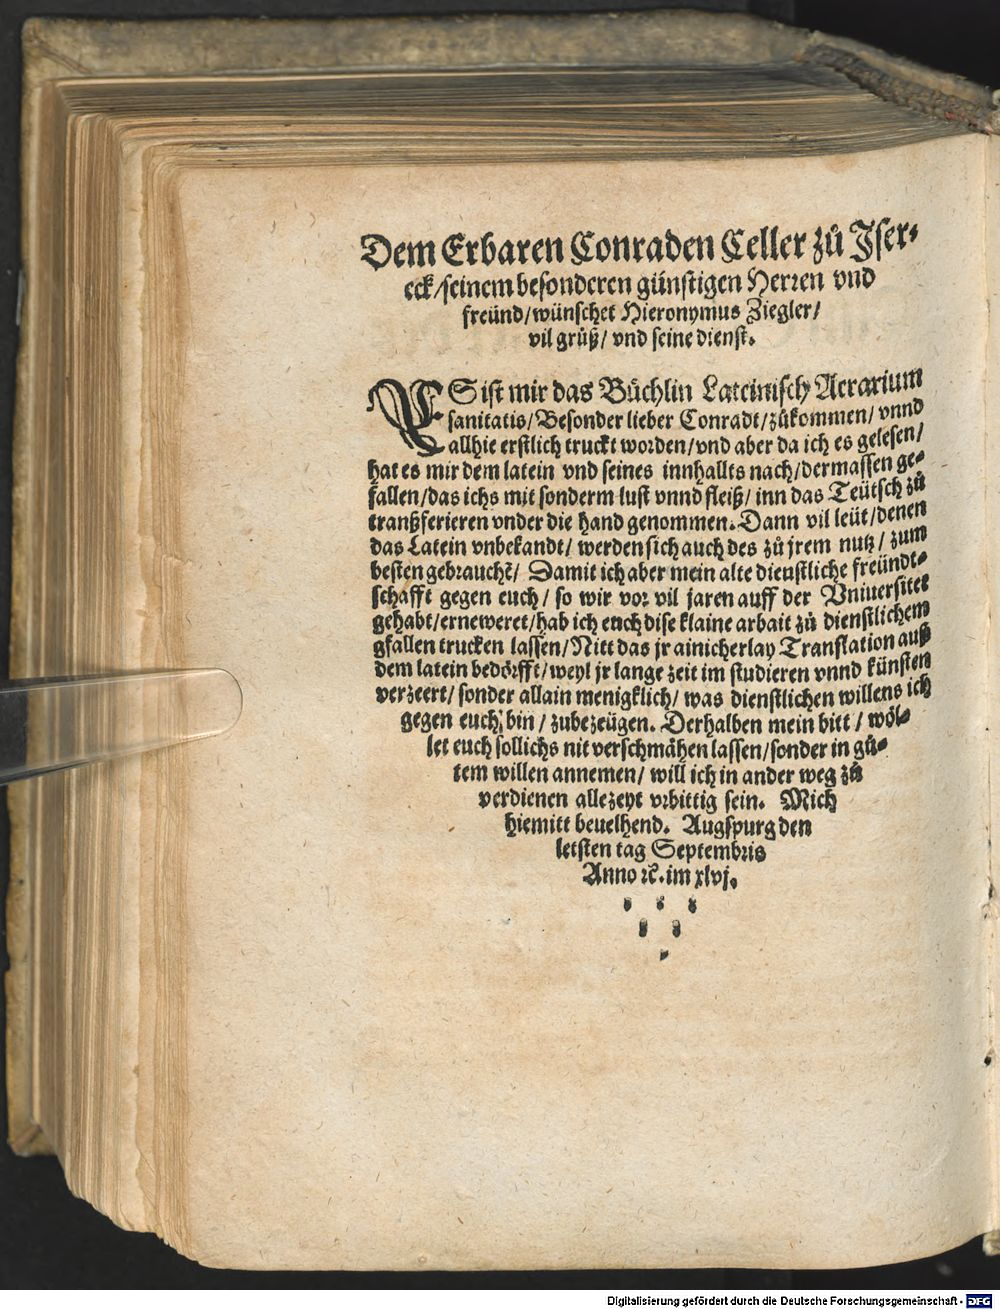 Dem Erbaren Conraden Celler zů Jser⸗
eck/seinem besonderen günstigen Herren vnd
freünd/wünschet Hieronymus Ziegler/
vil grůß/ vnd seine dienst.
ES ist mir das Büchlin Lateinisch Aerarium
sanitatis/Besonder lieber Conradt/zůkommen/ vnnd
allhie erstlich truckt worden/vnd aber da ich es gelesen/
hat es mir dem latein vnd seines innhallts nach/dermassen ge⸗
fallen/das ichs mit sonderm lust vnnd fleiß/ inn das Teütsch zů
tranßferieren vnder die hand genommen. Dann vil leüt/denen
das Latein vnbekandt/ werden sich auch des zů jrem nutz/ zum
besten gebrauchẽ/ Damit ich aber mein alte dienstliche freündt⸗
schafft gegen euch/ so wir vor vil jaren auff der Vniuersitet
gehabt/erneweret/hab ich euch dise klaine arbait zů dienstlichem
gfallen trucken lassen/Nitt das jr ainicherlay Translation auß
dem latein bedörfft/weyl jr lange zeit im studieren vnnd künsten
verzeert/ sonder allain menigklich/ was dienstlichen willens ich
gegen euch bin/ zubezeügen. Derhalben mein bitt/ wöl⸗
let euch sollichs nit verschmähen lassen/sonder in gů⸗
tem willen annemen/ will ich in ander weg zů
verdienen allezeyt vrbittig sein. Mich
hiemitt beuelhend. Augspurg den
letsten tag Septembris
Anno ꝛc. im xlvj.
Digitalisierung gefördert durch die Deutsche Forschungsgemeinschaft - DFG